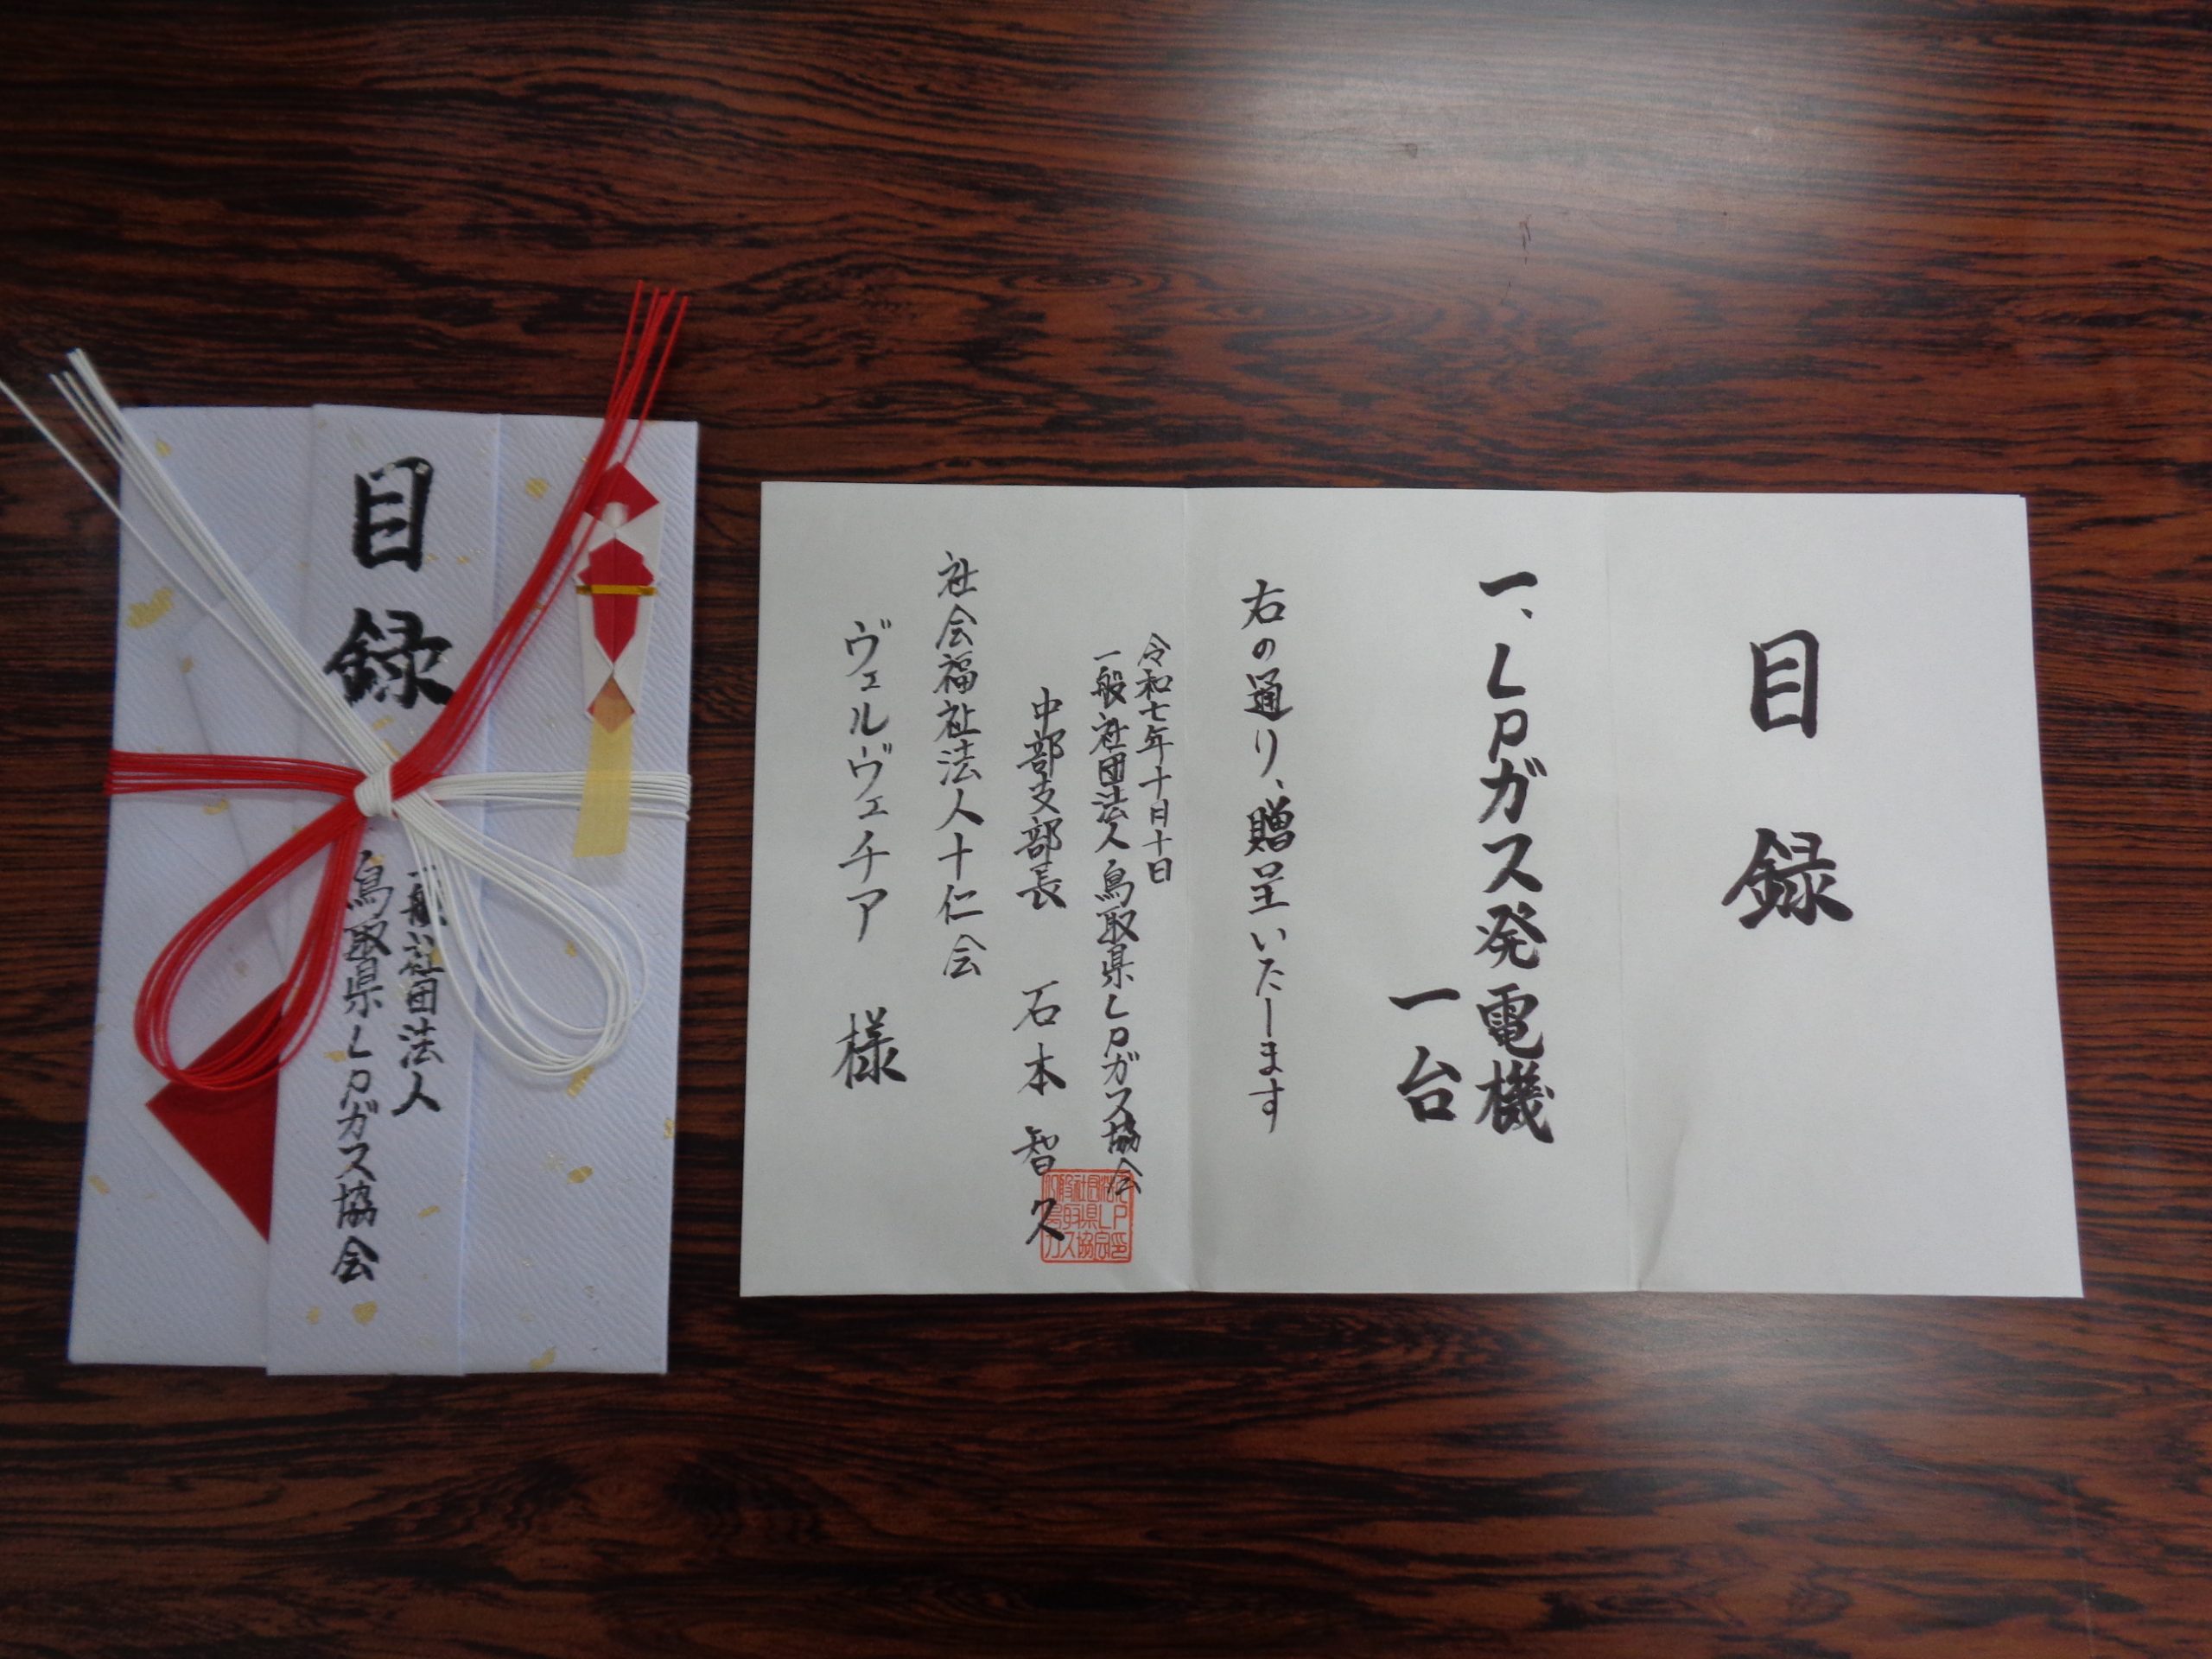 目録
一般社団法人
鳥取県LPガス協会
目録
一、LPガス発電機
一台
右の通り、贈呈いたします
令和七年十月十日
一般社団法人鳥取県LPガス協会
中部支部長 石本智久
社会福祉法人十仁会
ヴェルヴェチア 様